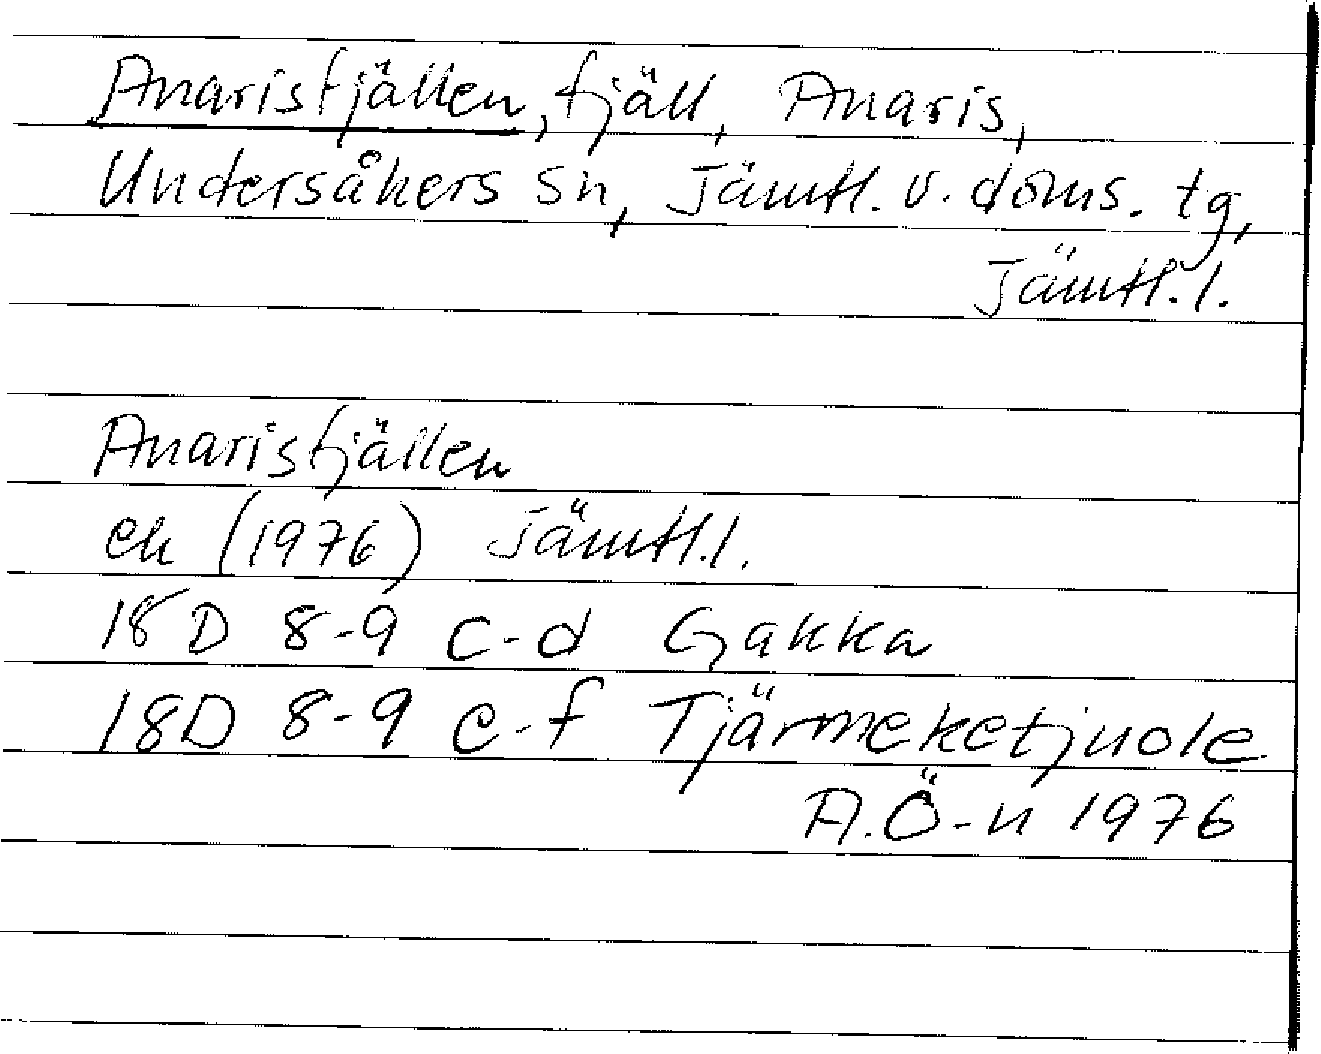 Anarisfjällen, fjäll, Anaris,
Undersåkers sn, Jämtl. v. doms. tg,
Jämtl. l.
Anarisfjällen
ek (1976) Jämtl. l.
18D 8-9 c-d Gakka
18D 8-9 e-f Tjärmeketjuole
A.Ö-n 1976